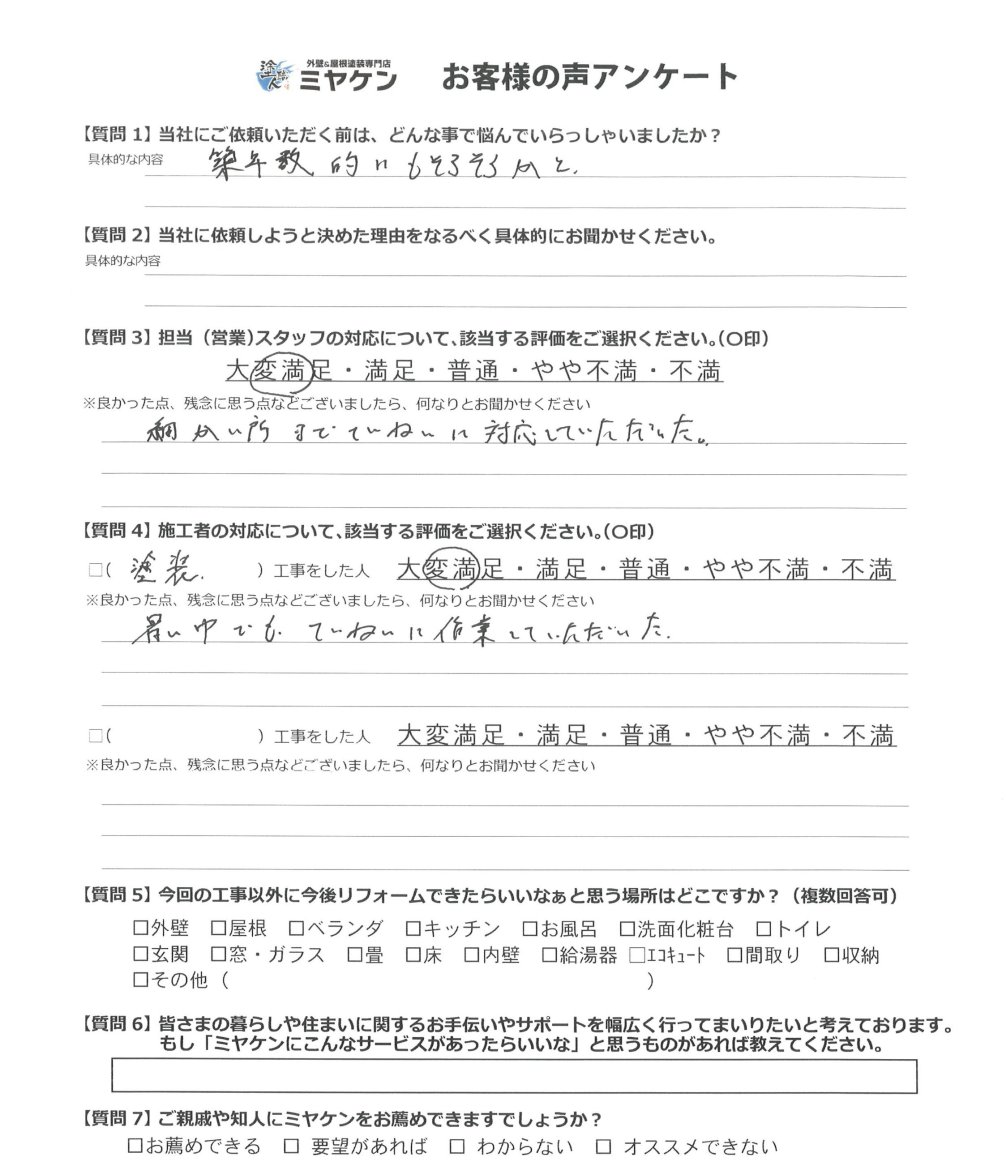 塗職人 外壁&屋根塗装専門店 ミヤケン お客様の声アンケート
【質問 1】当社にご依頼いただく前は、どんな事で悩んでいらっしゃいましたか？
具体的な内容 築年数的にもそろそろかと.
【質問 2】当社に依頼しようと決めた理由をなるべく具体的にお聞かせください。
具体的な内容
【質問 3】担当（営業)スタッフの対応について、該当する評価をご選択ください。（〇印）
大変満足・満足・普通・やや不満・不満
※良かった点、残念に思う点などございましたら、何なりとお聞かせください
細かい所までていねいに対応していただいた。
【質問 4】施工者の対応について、該当する評価をご選択ください。（〇印）
□( 塗装. ）工事をした人 大変満足・満足・普通・やや不満・不満
※良かった点、残念に思う点などございましたら、何なりとお聞かせください
暑い中でも.ていねいに作業していただいた.
□( ）工事をした人 大変満足・満足・普通・やや不満・不満
※良かった点、残念に思う点などございましたら、何なりとお聞かせください
【質問 5】今回の工事以外に今後リフォームできたらいいなぁと思う場所はどこですか？（複数回答可）
□外壁 □屋根 □ベランダ □キッチン □お風呂 □洗面化粧台 □トイレ
□玄関 □窓・ガラス □畳 □床 □内壁 □給湯器 □ｴｺｷｭｰﾄ □間取り □収納
□その他（ ）
【質問 6】皆さまの暮らしや住まいに関するお手伝いやサポートを幅広く行ってまいりたいと考えております。
もし「ミヤケンにこんなサービスがあったらいいな」と思うものがあれば教えてください。
【質問 7】ご親戚や知人にミヤケンをお薦めできますでしょうか？
□お薦めできる □ 要望があれば □ わからない □ オススメできない